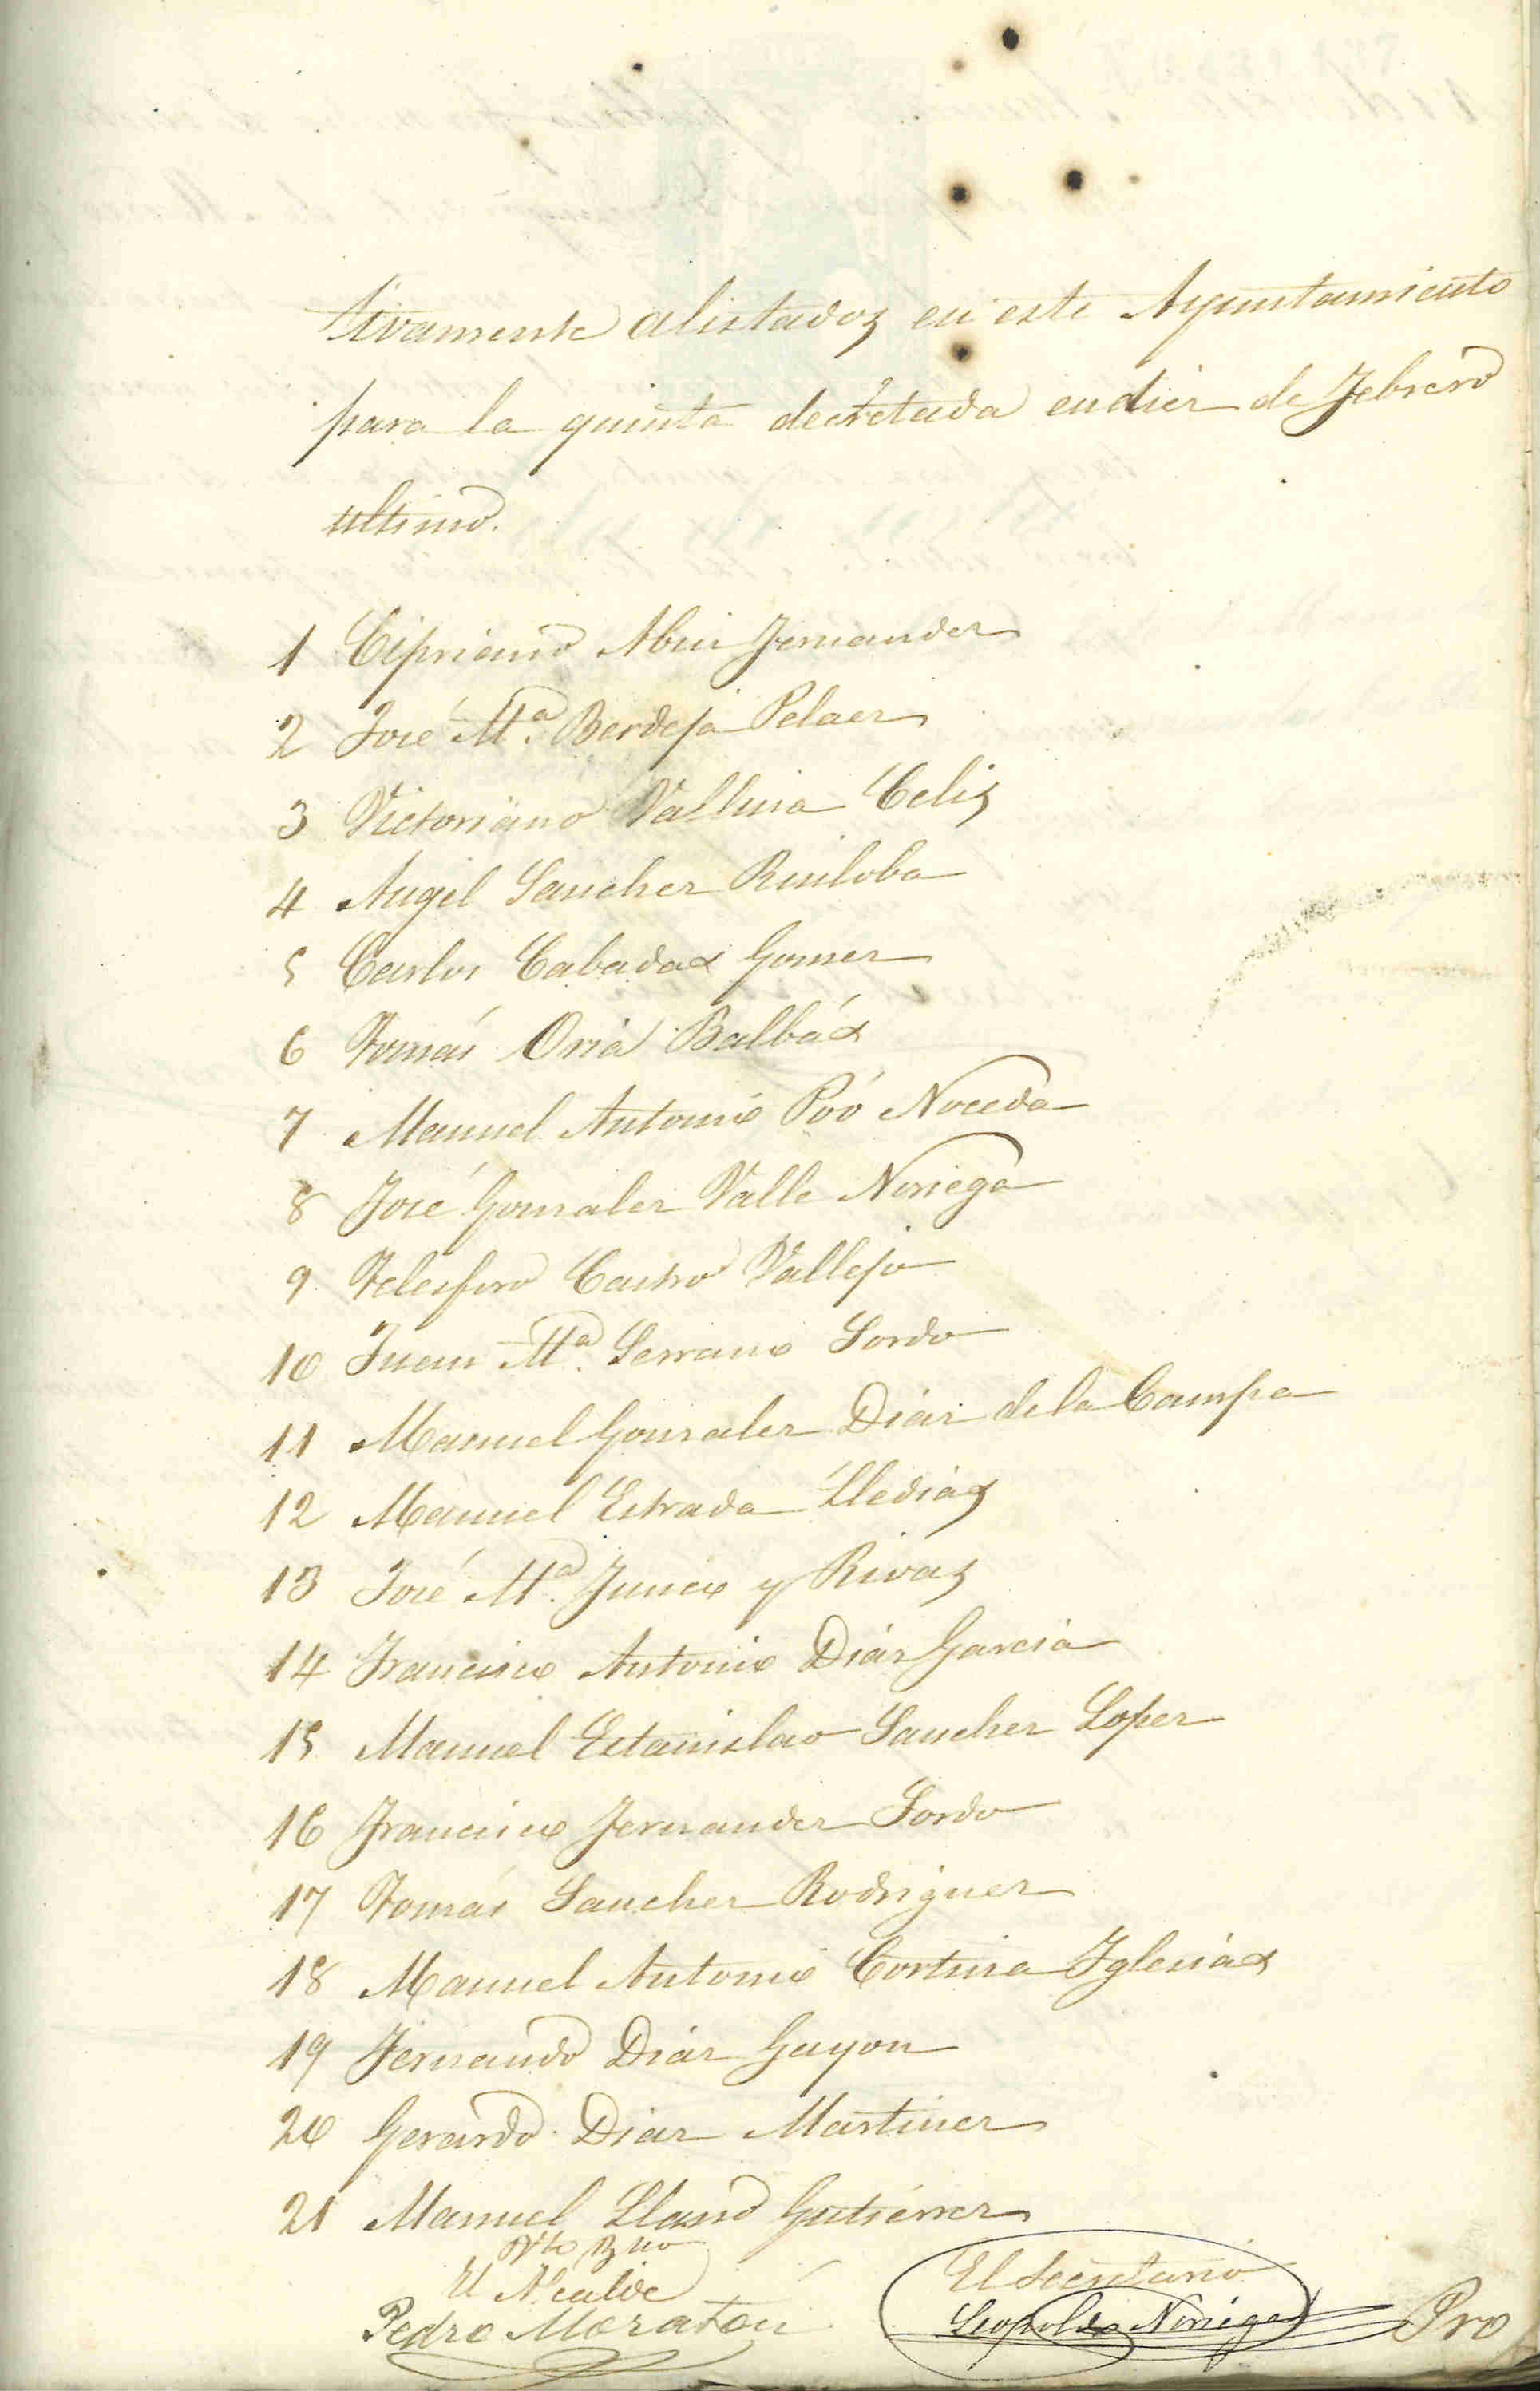 tivamente alistados en este Ayuntamiento
para la quinta decretada en dier de Febrero
ultimo.
1 Cipriano Abin Fernander
2 José Mª. Berdeja Pelaer
3 Victoriano Vallina Celis
4 Angel Sancher Ruiloba
5 Carlos Cabadas Gomer
6 Tomás Oria Balbás
7 Manuel Antonio Póo Noceda
8 José Gonraler Valle Noriega
9 Telesforo Castro Vallejo
10 Juan Mª. Serrano Sordo
11 Manuel Gonraler Diár de la Campa
12 Manuel Estrada Lledias
13 José Mª. Junco y Rivas
14 Francisco Antonio Diár Garcia
15 Manuel Estanislao Sancher Loper
16 Francisco Fernander Sordo
17 Tomás Sancher Rodriguer
18 Manuel Antonio Cortina Iglesias
19 Fernando Diár Gayon
20 Gerardo Diar Martiner
21 Manuel Llano Gutiérrer
Vto Bno
El Alcalde
El Secretario
Pedro Moraton
Leopoldo Noriega
Pro